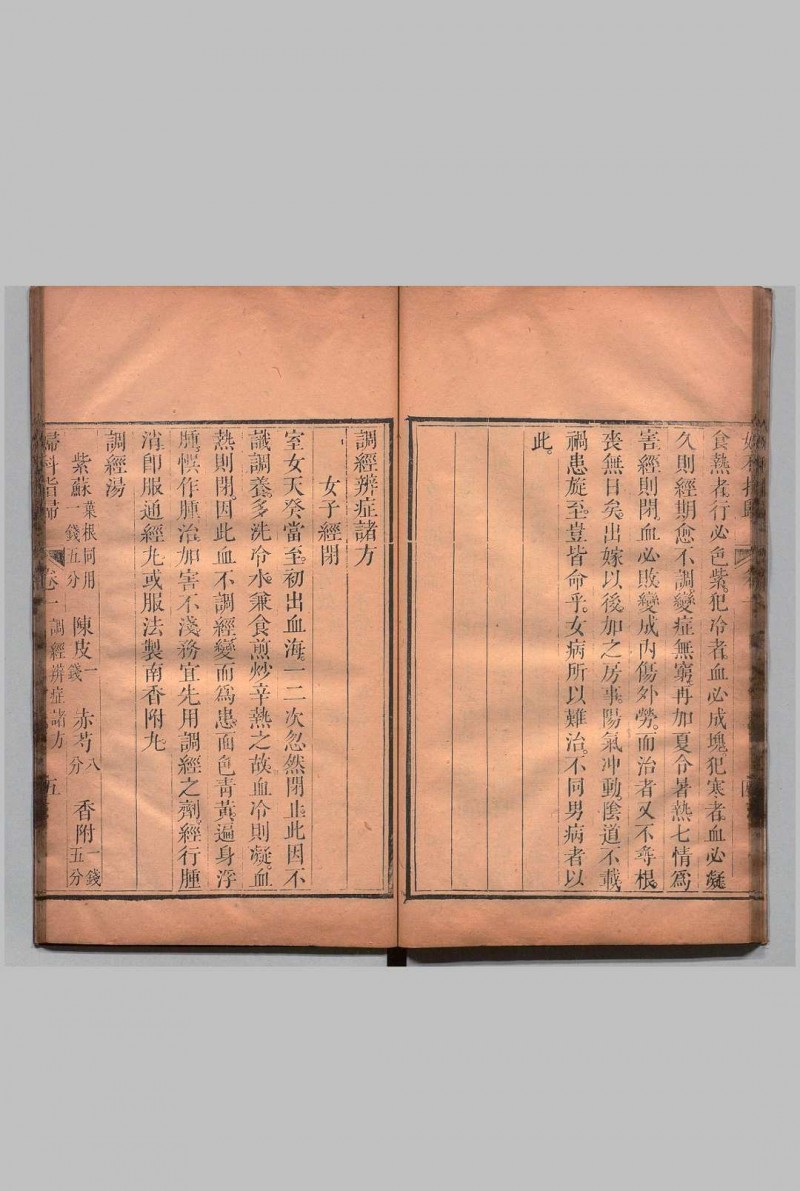 食熱者行必色紫。犯冷者血必成塊。犯寒者血必凝
久則經期愈不調。變症無窮。再加夏令暑熱七情爲
害。經則閉。血必敗。變成內傷外勞。而治者又不尋根。
喪無日矣。出嫁以後。加之房事。陽氣冲動。陰道不載。
禍患旋至。豈皆命乎。女病所以難治。不同男病者以
此。
調經辨症諸方
女子經閉
室女天癸當至。初出血海。一二次忽然閉止。此因不
識調養。多洗冷水。兼食煎炒辛熱之故。血冷則凝。血
熱則閉。因此血不調。經變而爲患。面色青黃。遍身浮
腫。悞作腫治。加害不淺。務宜先用調經之劑。經行腫
消。卽服通經丸。或服法製南香附丸。
調經湯
紫蘇葉根同用一錢五分 陳皮一錢 赤芍八分 香附一錢五分
婦科指歸 卷一 調經辨症諸方 五